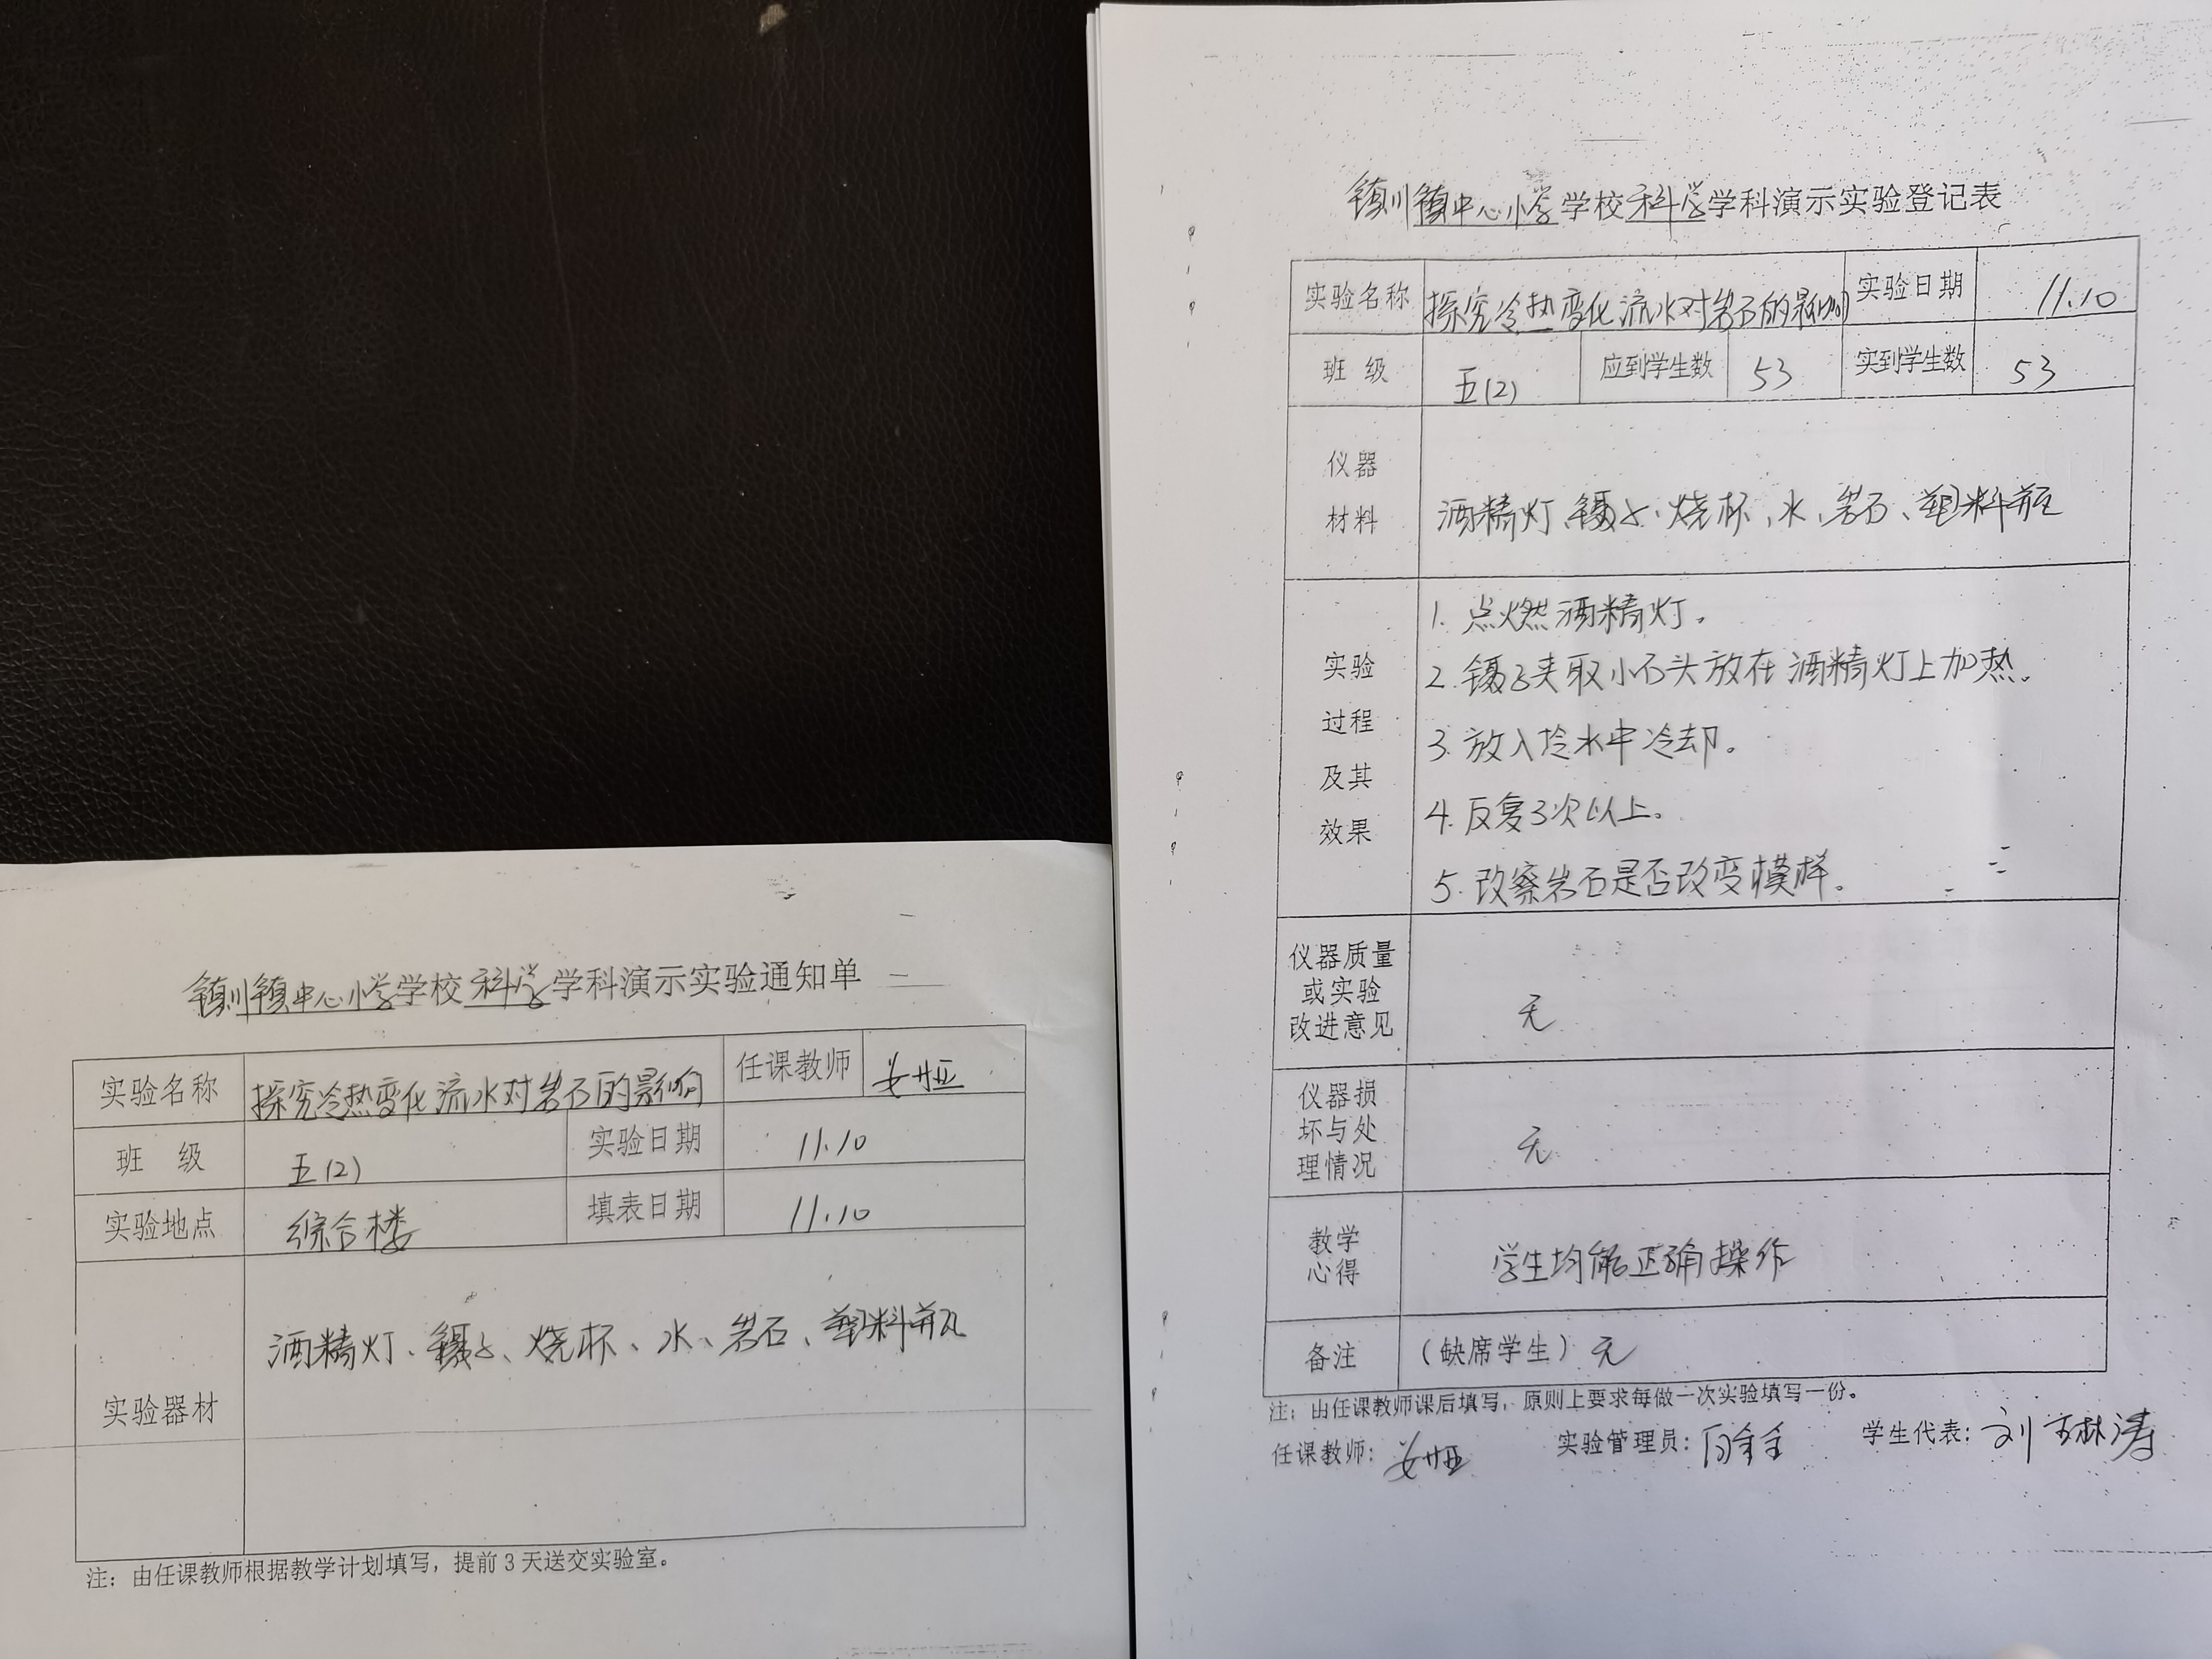 镇川镇中心小学学校科学学科演示实验通知单
实验名称 探究冷热变化流水对岩石的影响 任课教师 姜娅
班 级 五(2) 实验日期 11.10
实验地点 综合楼 填表日期 11.10
实验器材 酒精灯、镊子、烧杯、水、岩石、塑料瓶
注：由任课教师根据教学计划填写，提前3天送交实验室。
镇川镇中心小学学校科学学科演示实验登记表
实验名称 探究冷热变化流水对岩石的影响 实验日期 11.10
班 级 五(2) 应到学生数 53 实到学生数 53
仪器
材料
酒精灯、镊子、烧杯、水、岩石、塑料瓶
实验
过程
及其
效果
1. 点燃酒精灯。
2. 镊子夹取小石头放在酒精灯上加热。
3. 放入冷水中冷却。
4. 反复3次以上。
5. 改察岩石是否改变模样。
仪器质量
或实验
改进意见
无
仪器损
坏与处
理情况
无
教学
心得
学生均能正确操作
备注 （缺席学生）无
注：由任课教师课后填写，原则上要求每做一次实验填写一份。
任课教师：姜娅 实验管理员： 学生代表：刘